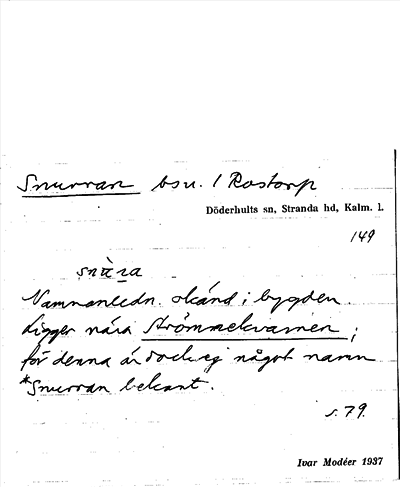 Snurran bsu. / Rostorp
Döderhults sn, Stranda hd, Kalm. l.
149
snùra
Namnanledn. okänd i bygden.
Ligger nära Strömmekvarnen;
för denna är dock ej något namn
*Snurran bekant.
s. 79.
Ivar Modéer 1937